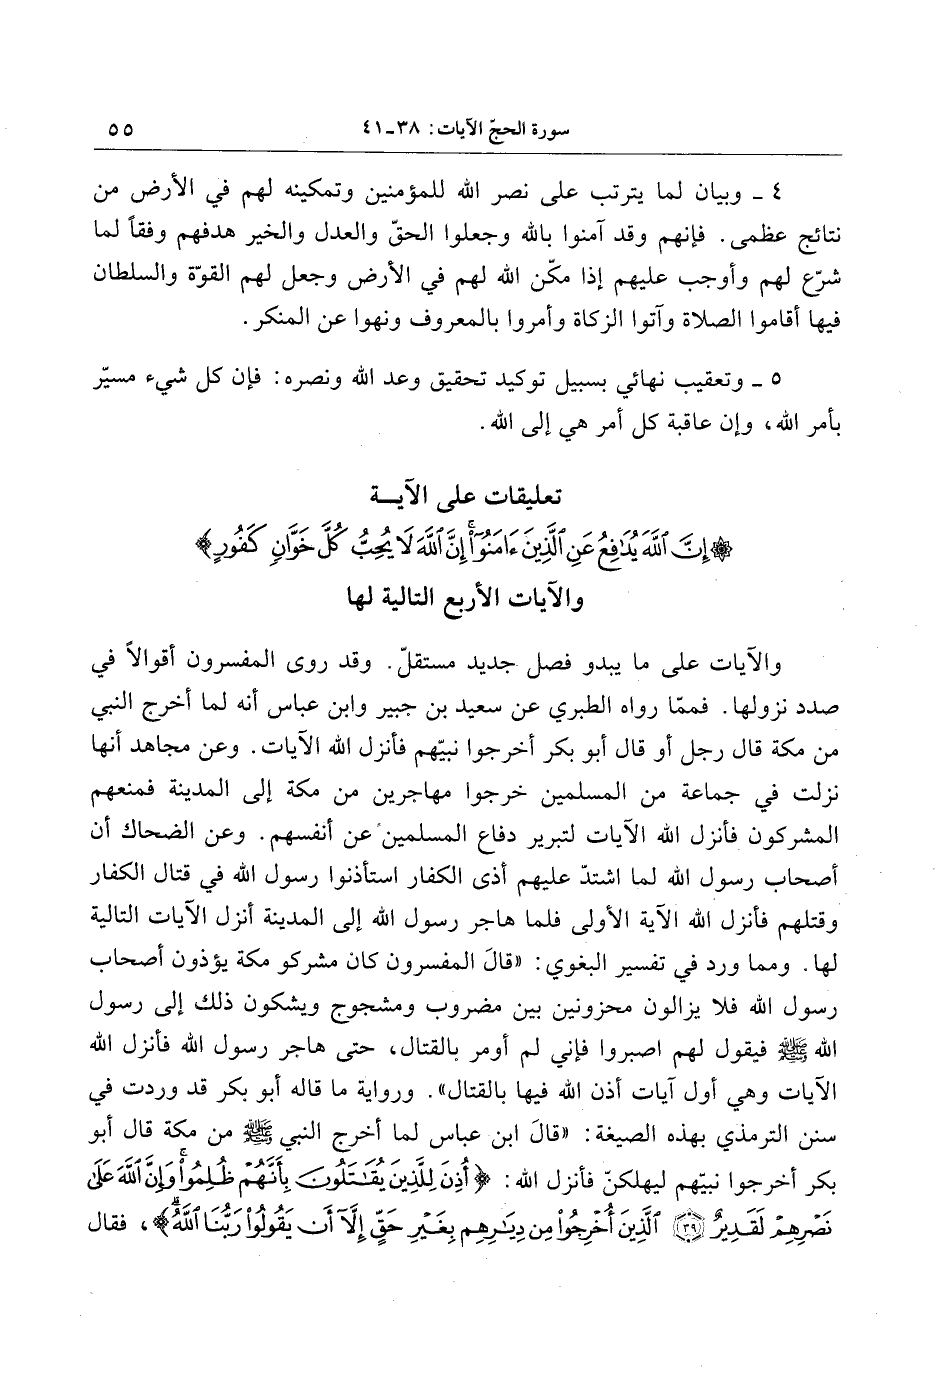 سورة الحجّ الآيات: ٣٨-٤١
٥٥
٤ - وبيان لما يترتب على نصر الله للمؤمنين وتمكينه لهم في الأرض من
نتائج عظمى. فإنهم وقد آمنوا بالله وجعلوا الحقّ والعدل والخير هدفهم وفقاً لما
شرّع لهم وأوجب عليهم إذا مكّن الله لهم في الأرض وجعل لهم القوّة والسلطان
فيها أقاموا الصلاة وآتوا الزكاة وأمروا بالمعروف ونهوا عن المنكر.
٥ - وتعقيب نهائي بسبيل توكيد تحقيق وعد الله ونصره: فإن كل شيء مسيّر
بأمر الله، وإن عاقبة كل أمر هي إلى الله.
تعليقات على الآيـــة
﴿۞ إِنَّ ٱللَّهَ يُدَٰفِعُ عَنِ ٱلَّذِينَ ءَامَنُوٓا۟ ۗ إِنَّ ٱللَّهَ لَا يُحِبُّ كُلَّ خَوَّانٍ كَفُورٍ﴾
والآيات الأربع التالية لها
والآيات على ما يبدو فصل جديد مستقلّ. وقد روى المفسرون أقوالاً في
صدد نزولها. فممّا رواه الطبري عن سعيد بن جبير وابن عباس أنه لما أخرج النبي
من مكة قال رجل أو قال أبو بكر أخرجوا نبيّهم فأنزل الله الآيات. وعن مجاهد أنها
نزلت في جماعة من المسلمين خرجوا مهاجرين من مكة إلى المدينة فمنعهم
المشركون فأنزل الله الآيات لتبرير دفاع المسلمين عن أنفسهم. وعن الضحاك أن
أصحاب رسول الله لما اشتدّ عليهم أذى الكفار استأذنوا رسول الله في قتال الكفار
وقتلهم فأنزل الله الآية الأولى فلما هاجر رسول الله إلى المدينة أنزل الآيات التالية
لها. ومما ورد في تفسير البغوي: «قالَ المفسرون كان مشركو مكة يؤذون أصحاب
رسول الله فلا يزالون محزونين بين مضروب ومشجوج ويشكون ذلك إلى رسول
الله ﷺ فيقول لهم اصبروا فإني لم أومر بالقتال، حتى هاجر رسول الله فأنزل الله
الآيات وهي أول آيات أذن الله فيها بالقتال». ورواية ما قاله أبو بكر قد وردت في
سنن الترمذي بهذه الصيغة: «قالَ ابن عباس لما أخرج النبي ﷺ من مكة قال أبو
بكر أخرجوا نبيّهم ليهلكنّ فأنزل الله: ﴿أُذِنَ لِلَّذِينَ يُقَٰتَلُونَ بِأَنَّهُمْ ظُلِمُوا۟ ۚ وَإِنَّ ٱللَّهَ عَلَىٰ
نَصْرِهِمْ لَقَدِيرٌ ۝٣٩ ٱلَّذِينَ أُخْرِجُوا۟ مِن دِيَٰرِهِم بِغَيْرِ حَقٍّ إِلَّآ أَن يَقُولُوا۟ رَبُّنَا ٱللَّهُ ۗ﴾، فقال